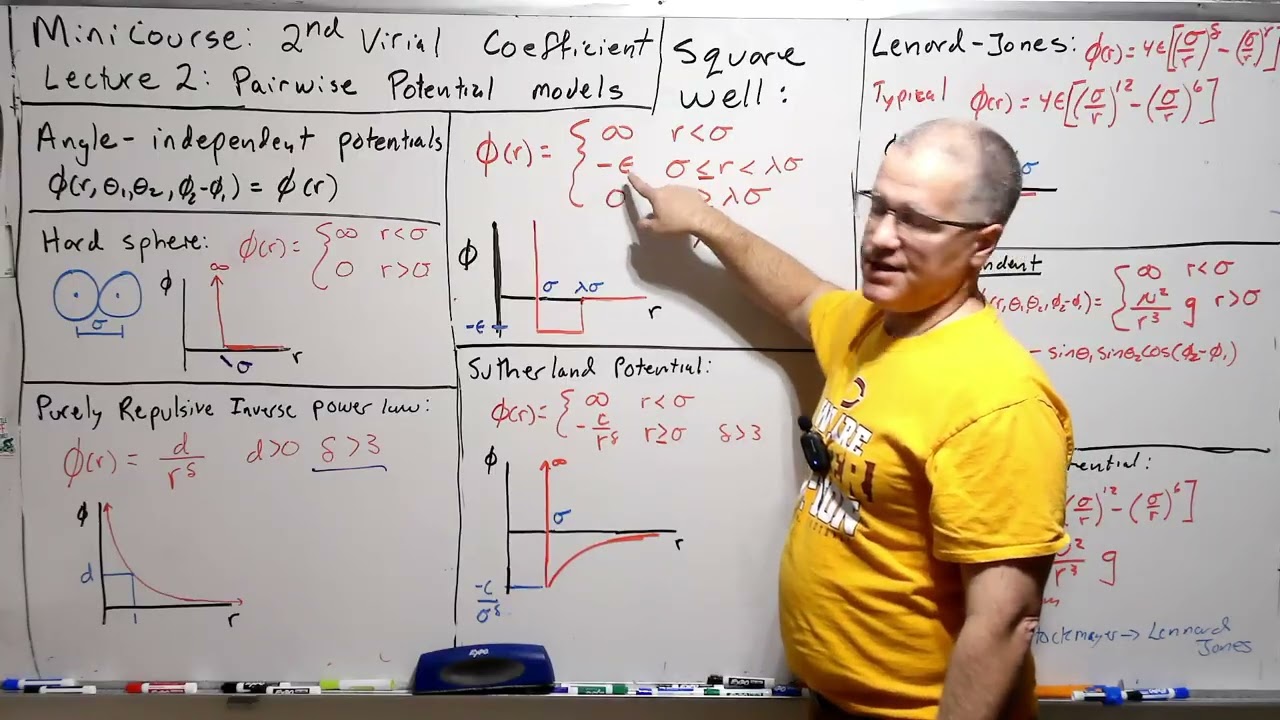 Minicourse: 2nd Virial Coefficient
Lecture 2: Pairwise Potential models
Angle-independent potentials
ϕ(r,θ₁,θ₂,ϕ₂-ϕ₁) = ϕ(r)
Hard sphere:
ϕ(r) = { ∞ r<σ
0 r>σ
ϕ
∞
σ
r
σ
Purely Repulsive Inverse power law:
ϕ(r) = d/r^δ d>0 δ>3
ϕ
d
1
r
Square
well:
ϕ(r) = { ∞ r<σ
-ε σ≤r<λσ
0 λσ
ϕ
σ λσ
r
-ε
Sutherland Potential:
ϕ(r) = { ∞ r<σ
-c/r^δ r≥σ δ>3
ϕ
∞
σ
r
-c/σ^δ
Lenard-Jones: ϕ(r) = 4ε[(σ/r)^δ - (σ/r)^γ]
Typical ϕ(r) = 4ε[(σ/r)^12 - (σ/r)^6]
σ
ndent
r,θ₁,θ₂,ϕ₂-ϕ₁) = { ∞ r<σ
μ²/r³ g r>σ
- sinθ₁sinθ₂cos(ϕ₂-ϕ₁)
ential:
(σ/r)^12 - (σ/r)^6]
μ²/r³ g
tockmayer → Lennard
Jones
EXPO